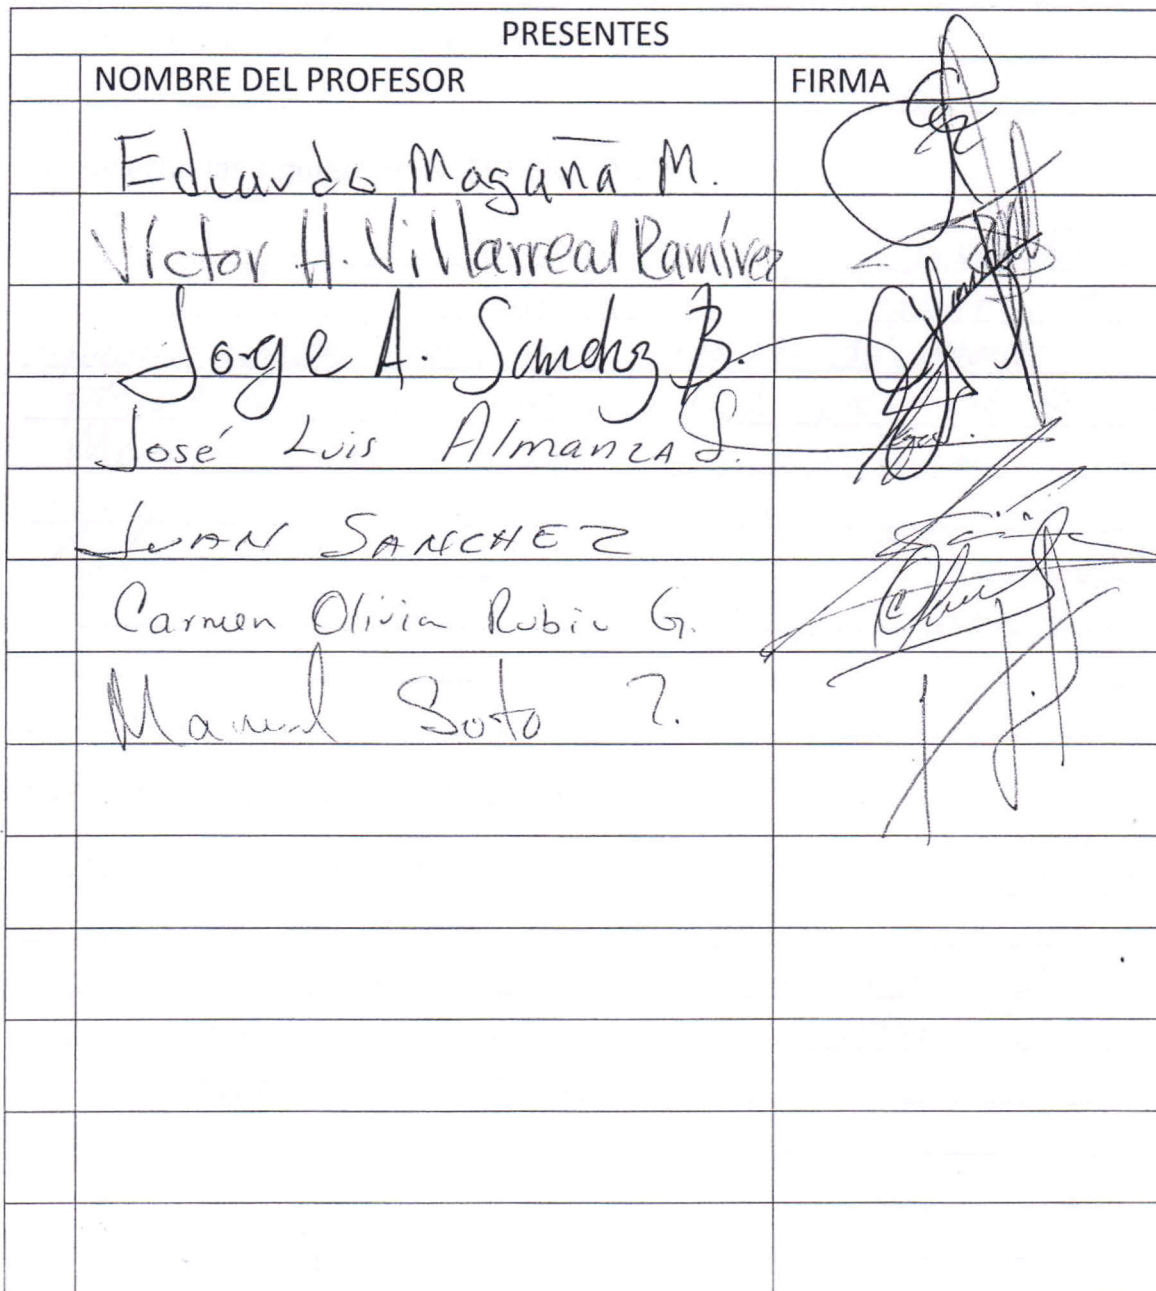 PRESENTES
NOMBRE DEL PROFESOR FIRMA
Eduardo Magaña M.
Víctor H. Villarreal Ramírez
Jorge A. Sanchez B.
José Luis Almanza S.
JUAN SANCHEZ
Carmen Olivia Rubio G.
Manuel Soto